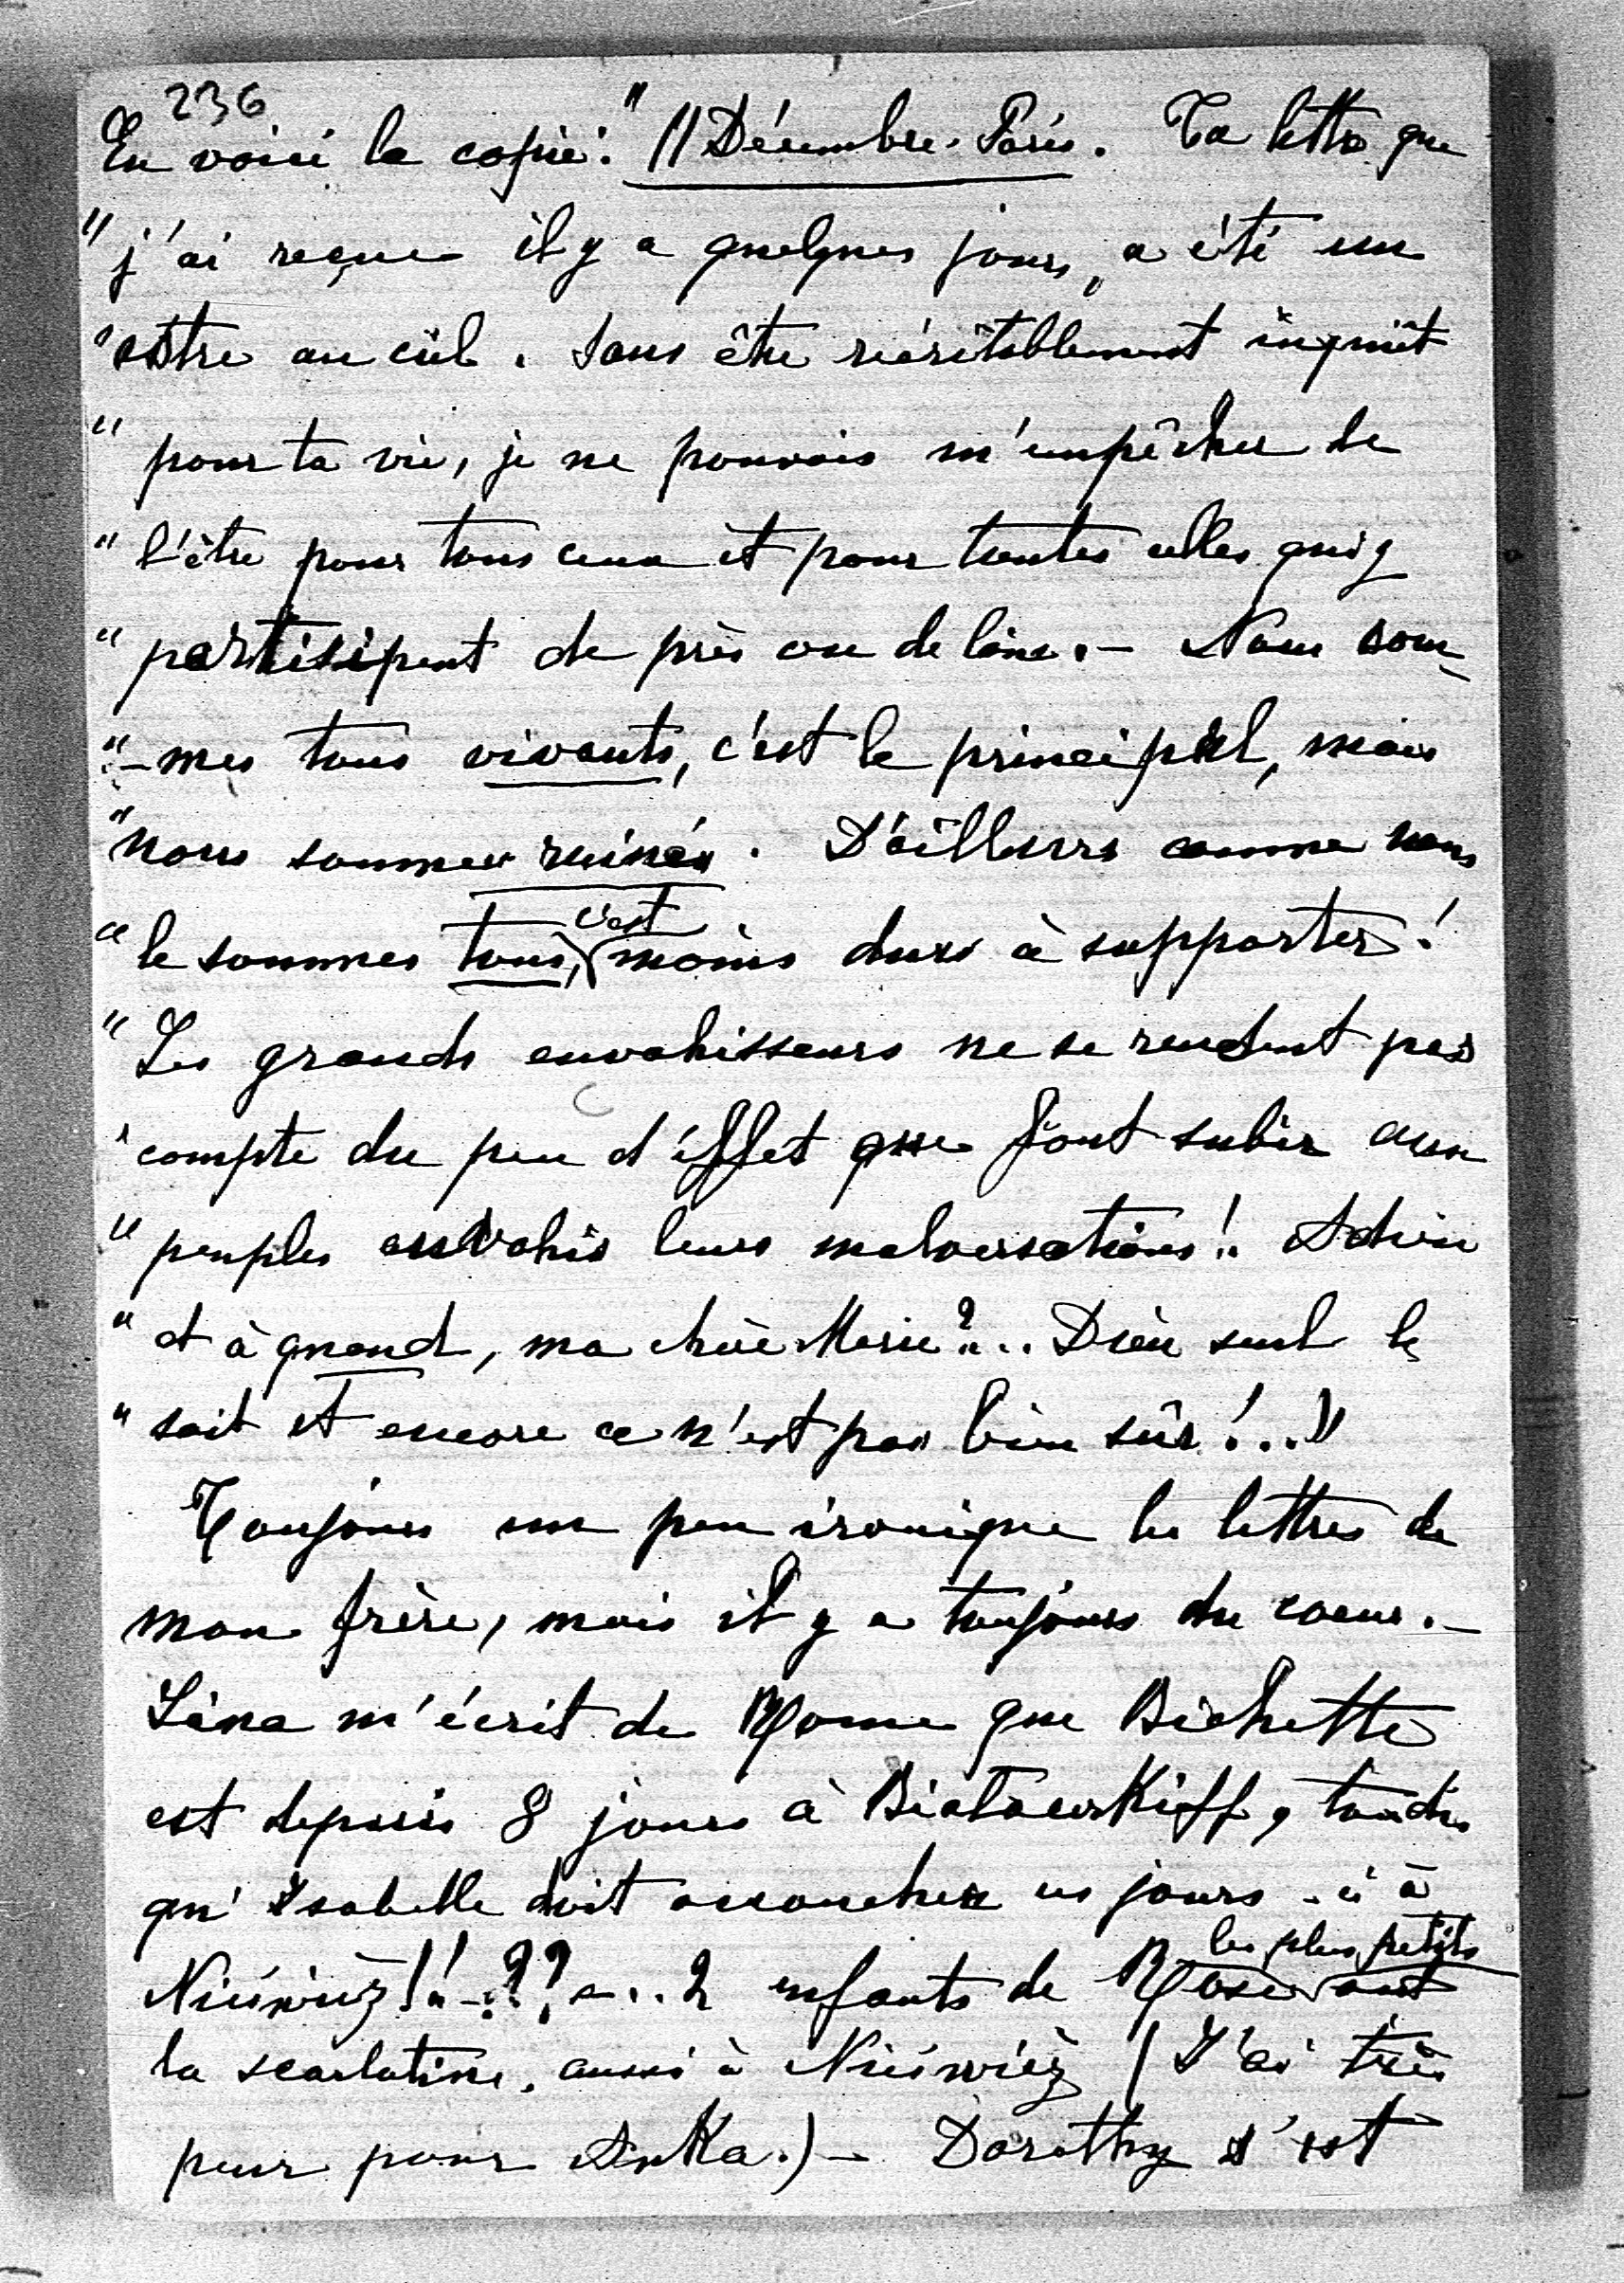 236
En voici la copie: " 11 Décembre. Paris. Ta lettre que
" j'ai reçue il y a quelques jours, a été un
" astre au ciel. Sans être véritablement inquiet
" pour ta vie, je ne pouvais m'empêcher de
" l'être pour tous ceux et pour toutes celles qui y
" participent de près ou de loin. — Nous som-
" -mes tous vivants, c'est le principal, mais
" nous sommes ruinés. D'ailleurs comme nous
" le sommes tous, c'est moins durs à supporter!
" Les grands envahisseurs ne se rendent pas
" compte du peu d'éffet que font subir aux
" peuples envahis leurs malversations!.. Adieu
" et à quand, ma chère Marie?... Dieu seul le
" sait et encore ce n'est pas bien sûr!.."
Toujours un peu ironique les lettres de
mon frère, mais il y a toujours du coeur. —
Lina m'écrit de Rome que Bichette
est depuis 8 jours à Białacerkieff, tandis
qu'Isabelle doit accoucher ces jours-ci à
Nieśwież!!-??!-... 2 enfants de Rose les plus petits ont
la scarlatine, aussi à Nieśwież (J'ai très
peur pour Anka.) — Dorothy s'est